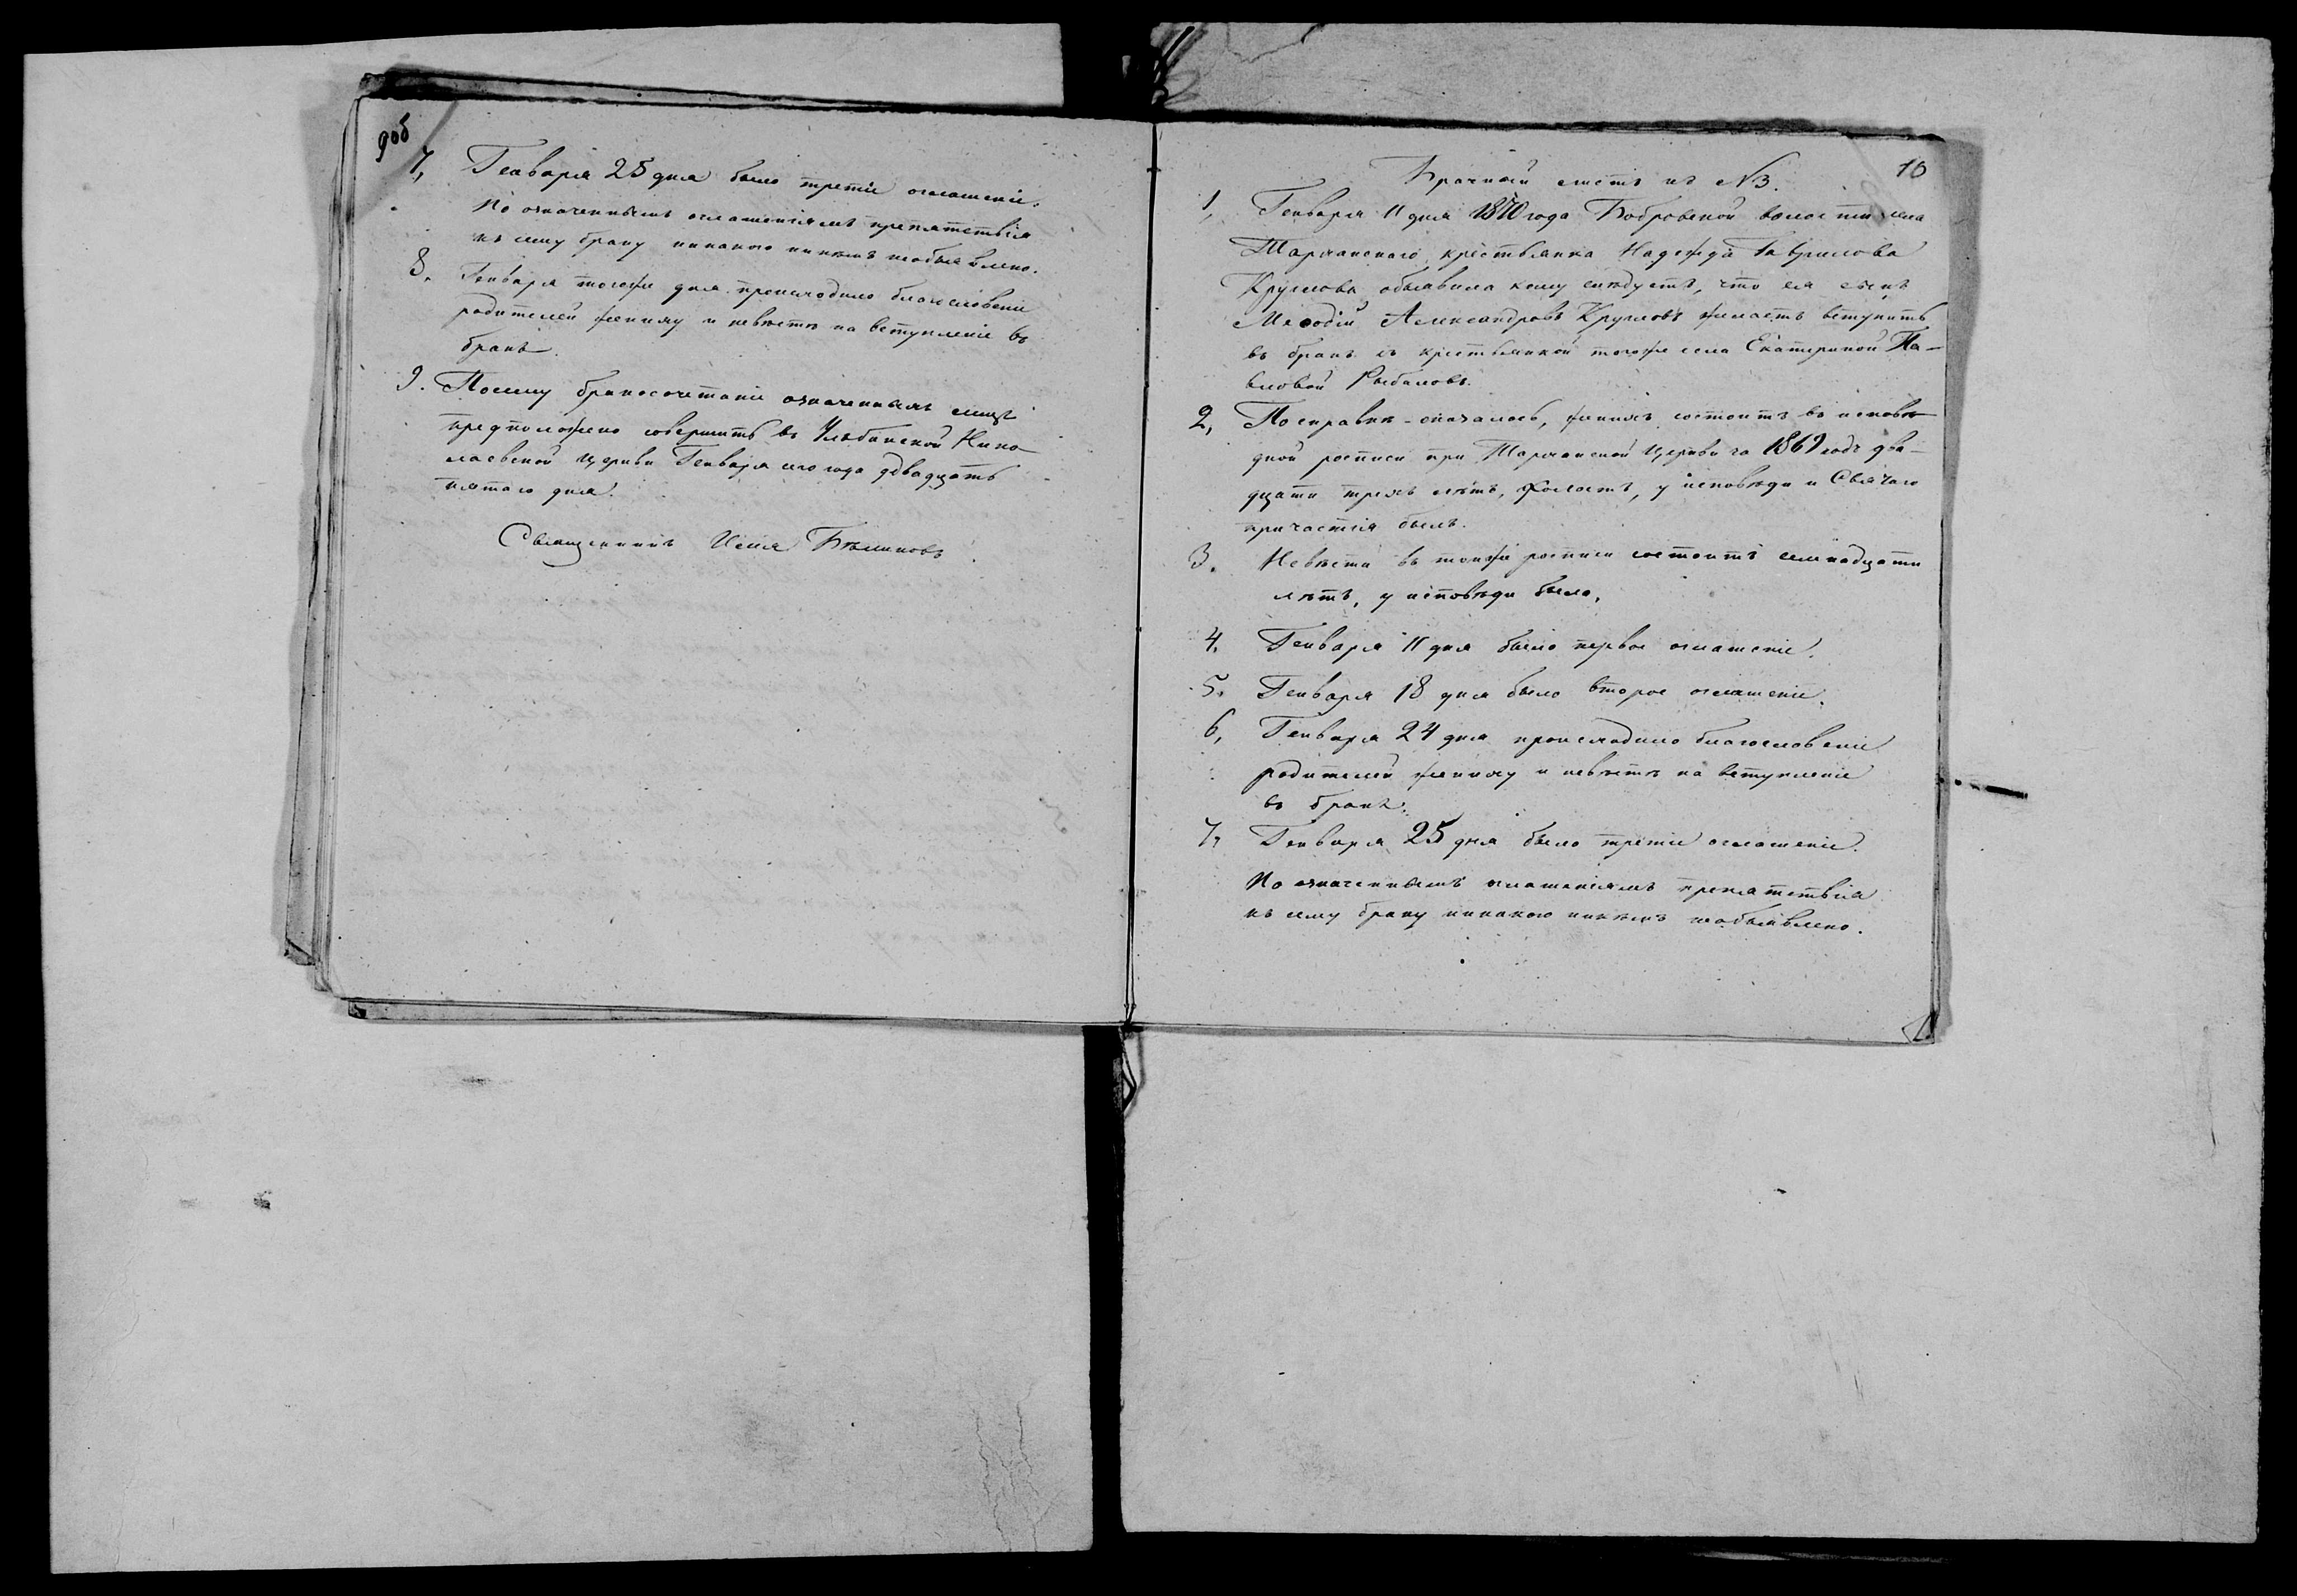 9об
7, Генваря 25 дня было третіе оглашеніе.
По означеннымъ оглашеніямъ препятствія
къ сему браку никакого никѣмъ необъявлено.
8. Генваря тогоже дня происходило благословеніе
родителей жениху и невѣстѣ на вступленіе въ
бракъ.
9. Посему бракосочетаніе означенныхъ лицъ
предположено совершить въ Ульбинской Нико-
лаевской церкви Генваря сего года двадцать
пятаго дня.
Священникъ Исаія Бѣликовъ
10
Брачный листъ къ №3.
1, Генваря 11 дня 1870 года Бобровской волости села
Тарханскаго крестьянка Надежда Гаврилова
Круглова объявила кому слѣдуетъ, что ея сынъ
Меѳодій Александровъ Кругловъ желаетъ вступить
въ бракъ съ крестьянкой тогоже села Екатериной Па-
вловой Рыбаловъ.
2, По справкѣ оказалось, женихъ состоитъ въ исповѣ-
дной росписи при Тарханской церкви за 1869 годъ два-
дцати трехъ лѣтъ, холостъ, у исповѣди и Святаго
причастія былъ.
3. Невѣста въ тойже росписи состоитъ семнадцати
лѣтъ, у исповѣди была.
4. Генваря 11 дня было первое оглашеніе.
5. Генваря 18 дня было второе оглашеніе.
6, Генваря 24 дня происходило благословеніе
родителей жениху и невѣстѣ на вступленіе
въ бракъ.
7, Генваря 25 дня было третіе оглашеніе.
По означеннымъ оглашеніямъ препятствія
къ сему браку никакого никѣмъ необъявлено.